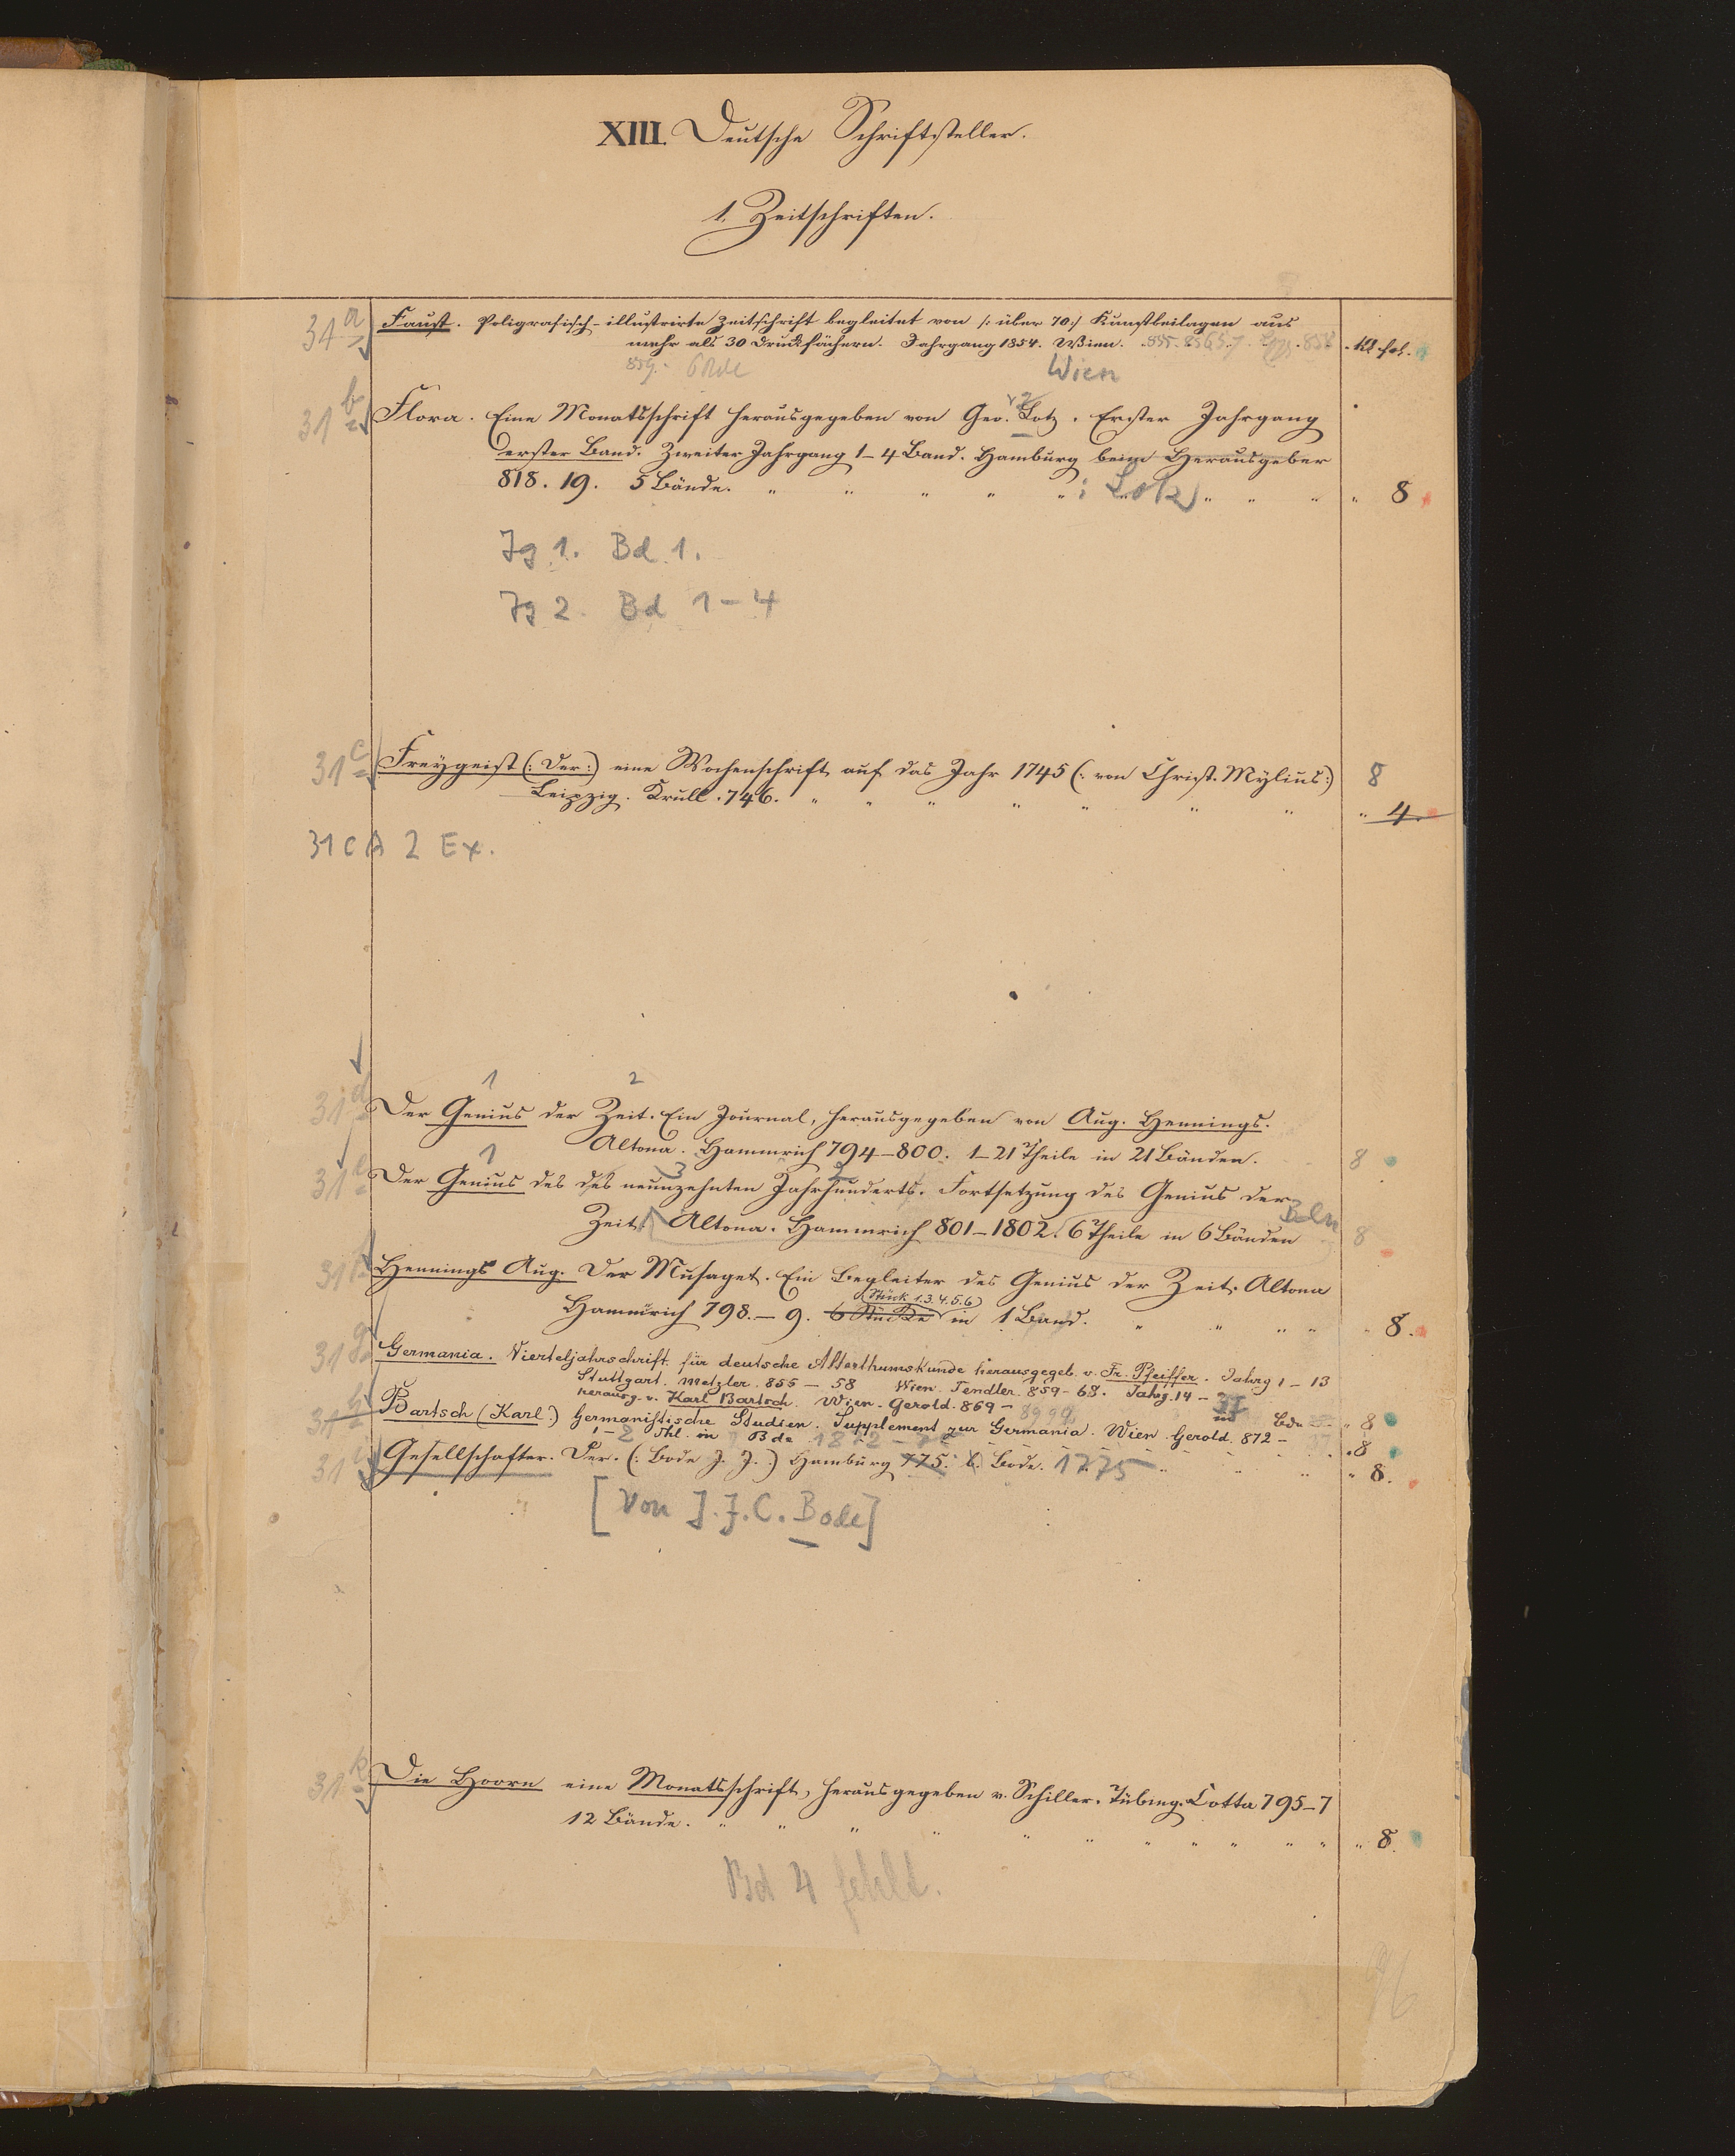 XIII. Deutsche Schriftsteller.
1. Zeitschriften.
31a Faust. Poligrafisch-illustrirte Zeitschrift begleitet von /: über 70 :/ Kunstbeilagen aus
mehr als 30 Druckfächern. Jahrgang 1854. Wien. 855. 858 . Kl. fol.
859. 6 Bde Wien
31b Flora. Eine Monatsschrift herausgegeben von Geo. Lotz. Erster Jahrgang
erster Band. Zweiter Jahrgang 1–4 Band. Hamburg beim Herausgeber
818. 19. 5 Bände. : Lotz " 8
Jg 1. Bd 1.
Jg 2. Bd 1–4
31c Freygeist (: Der :) eine Wochenschrift auf das Jahr 1745 (: von Christ. Mylius :) 8
Leipzig. Krull. 746. " 4.
31 c A 2 Ex.
1 2
31d Der Genius der Zeit. Ein Journal, herausgegeben von Aug. Hennings.
Altona. Hammrich 794–800. 1–21 Theile in 21 Bänden. 8
1 3 2
31e Der Genius des des neunzehnten Jahrhunderts. Fortsetzung des Genius der
Zeit. Altona. Hammrich 801–1802. 6 Theile in 6 Bänden 8
31f Hennings Aug. Der Musaget. Ein Begleiter des Genius der Zeit. Altona
(Stück 1.3.4.5.6)
Hammrich 798.–9. 6 Stücke in 1 Band. " 8.
31g Germania. Vierteljahrschrift für deutsche Alterthumskunde herausgegeb. v. Fr. Pfeiffer. Jahrg 1–13
Stuttgart. Metzler. 856 – 58 Wien. Tendler. 859–68. Jahrg. 14 – 37
herausg. v. Karl Bartsch. Wien. Gerold. 869 – in Bde " 8
31h Bartsch (Karl:) Germanistische Studien. Supplement zur Germania. Wien. Gerold. 872 –
1–2 Thl. in Bde 1872 – 75 " 8
31i Gesellschafter. Der. (: Bode J. J. :) Hamburg 775. b. Bode. 1775 " 8.
[von J. J. C. Bode]
31k Die Hooren eine Monatsschrift, herausgegeben v. Schiller. Tübing. Cotta 795–7
12 Bände. " 8.
Bd 4 fehlt.
96